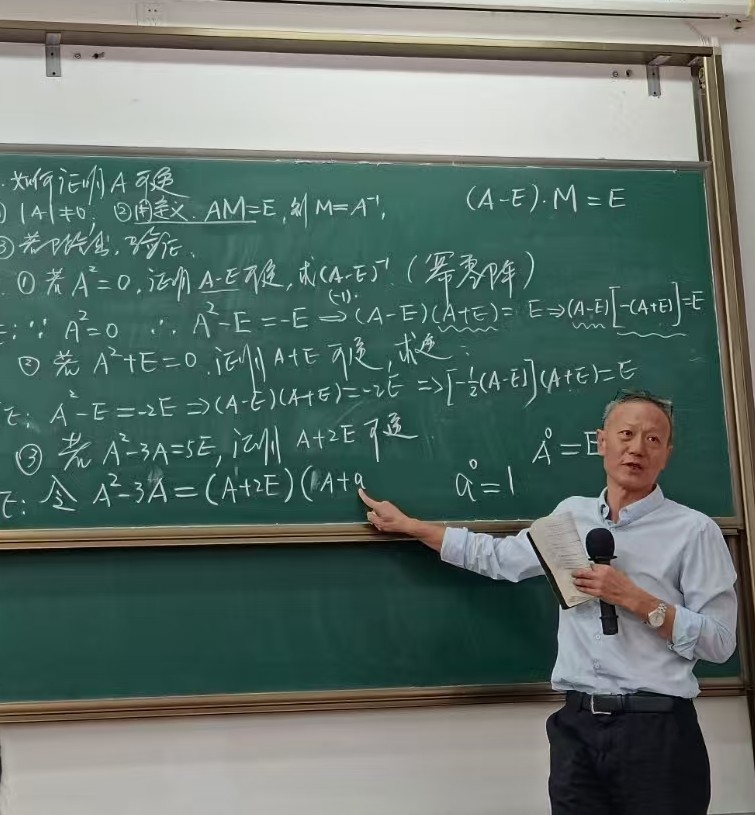 如何证明A可逆
|A|≠0, ②用定义. AM=E, 则M=A⁻¹,
(A-E)·M=E
③若
验证.
①若A²=0, 证明A-E可逆, 求(A-E)⁻¹ (幂零
∵ A²=0 ∴ A²-E=-E ⇒ (-1). (A-E)(A+E)= E ⇒ (A-E)[-(A+E)]=E
②若A²+E=0, 证明A+E可逆, 求逆:
证: A²-E=-2E ⇒ (A-E)(A+E)=-2E ⇒ [-½(A-E)](A+E)=E
③若A²-3A=5E, 证明A+2E可逆.
A⁰=E
证: 令A²-3A=(A+2E)(A+a
a⁰=1